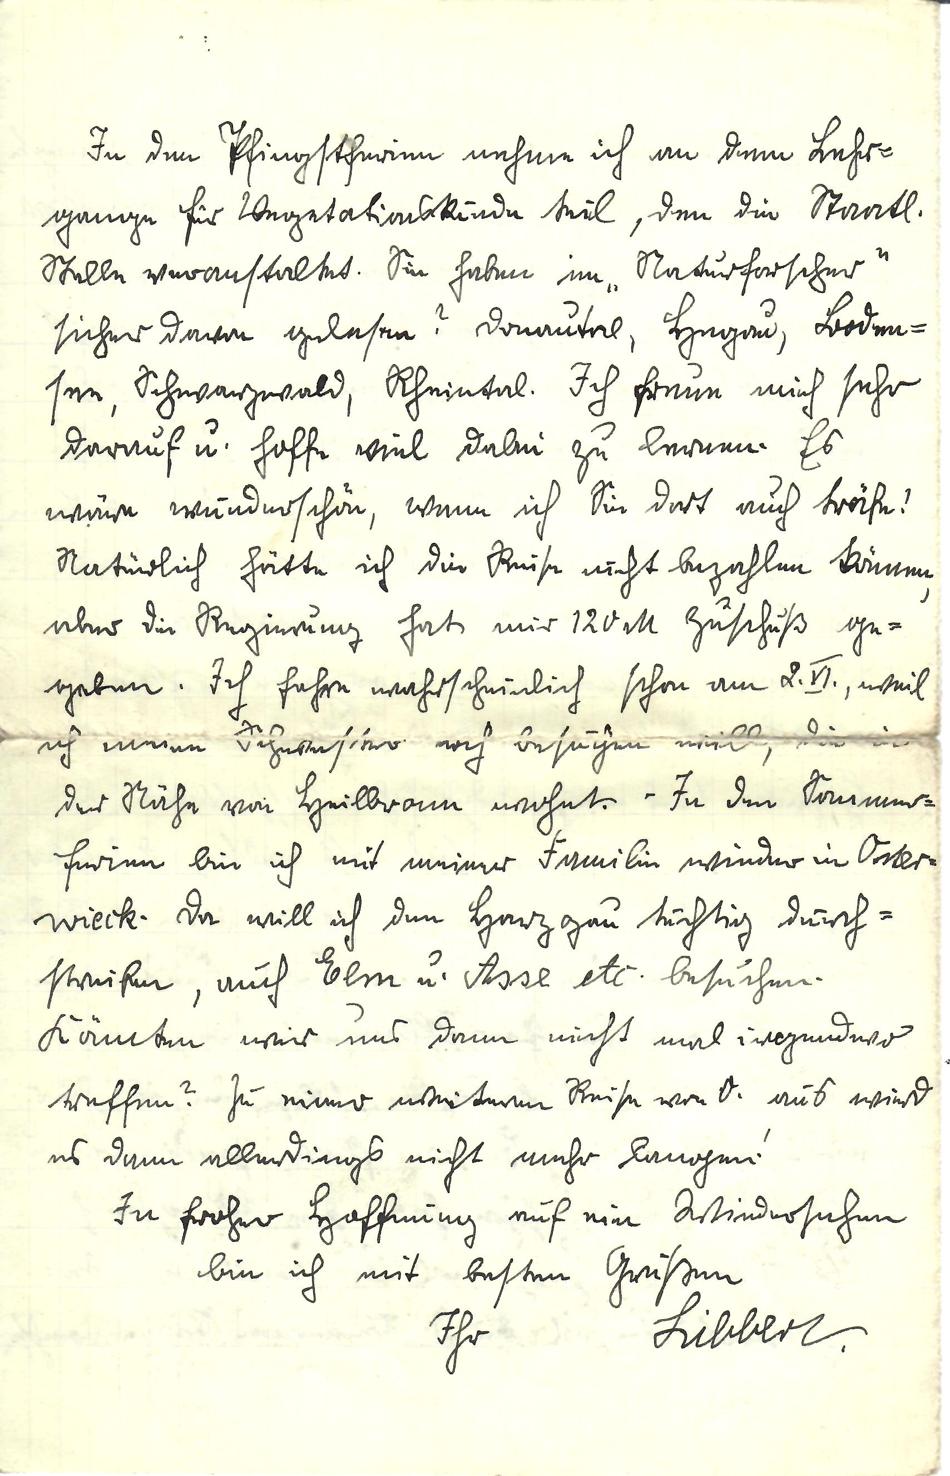 In den Pfingstferien nehme ich an dem Lehr=
gange für Vegetationskunde teil, den die Staatl.
Stelle veranstaltet. Sie haben im „Naturforscher"
sicher davon gelesen? Donautal, Hegau, Boden=
see, Schwarzwald, Rheintal. Ich freue mich sehr
darauf u. hoffe viel dabei zu lernen. Es
wäre wunderschön, wenn ich Sie dort auch träfe!
Natürlich hätte ich die Reise nicht bezahlen können,
aber die Regierung hat mir 120 M Zuschuß ge=
geben. Ich fahre wahrscheinlich schon am 2. VI., weil
ich meine Schwester noch besuchen will, die in
der Nähe von Heilbronn wohnt. - In den Sommer=
ferien bin ich mit meiner Familie wieder in Oster=
wieck. Da will ich den Harzgau tüchtig durch=
streifen, auch Elm u. Asse etc. besuchen.
Könnten wir uns dann nicht mal irgendwo
treffen? Zu einer weiteren Reise von O. aus wird
es dann allerdings nicht mehr langen!
In froher Hoffnung auf ein Wiedersehen
bin ich mit besten Grüßen
Ihr Libbert.